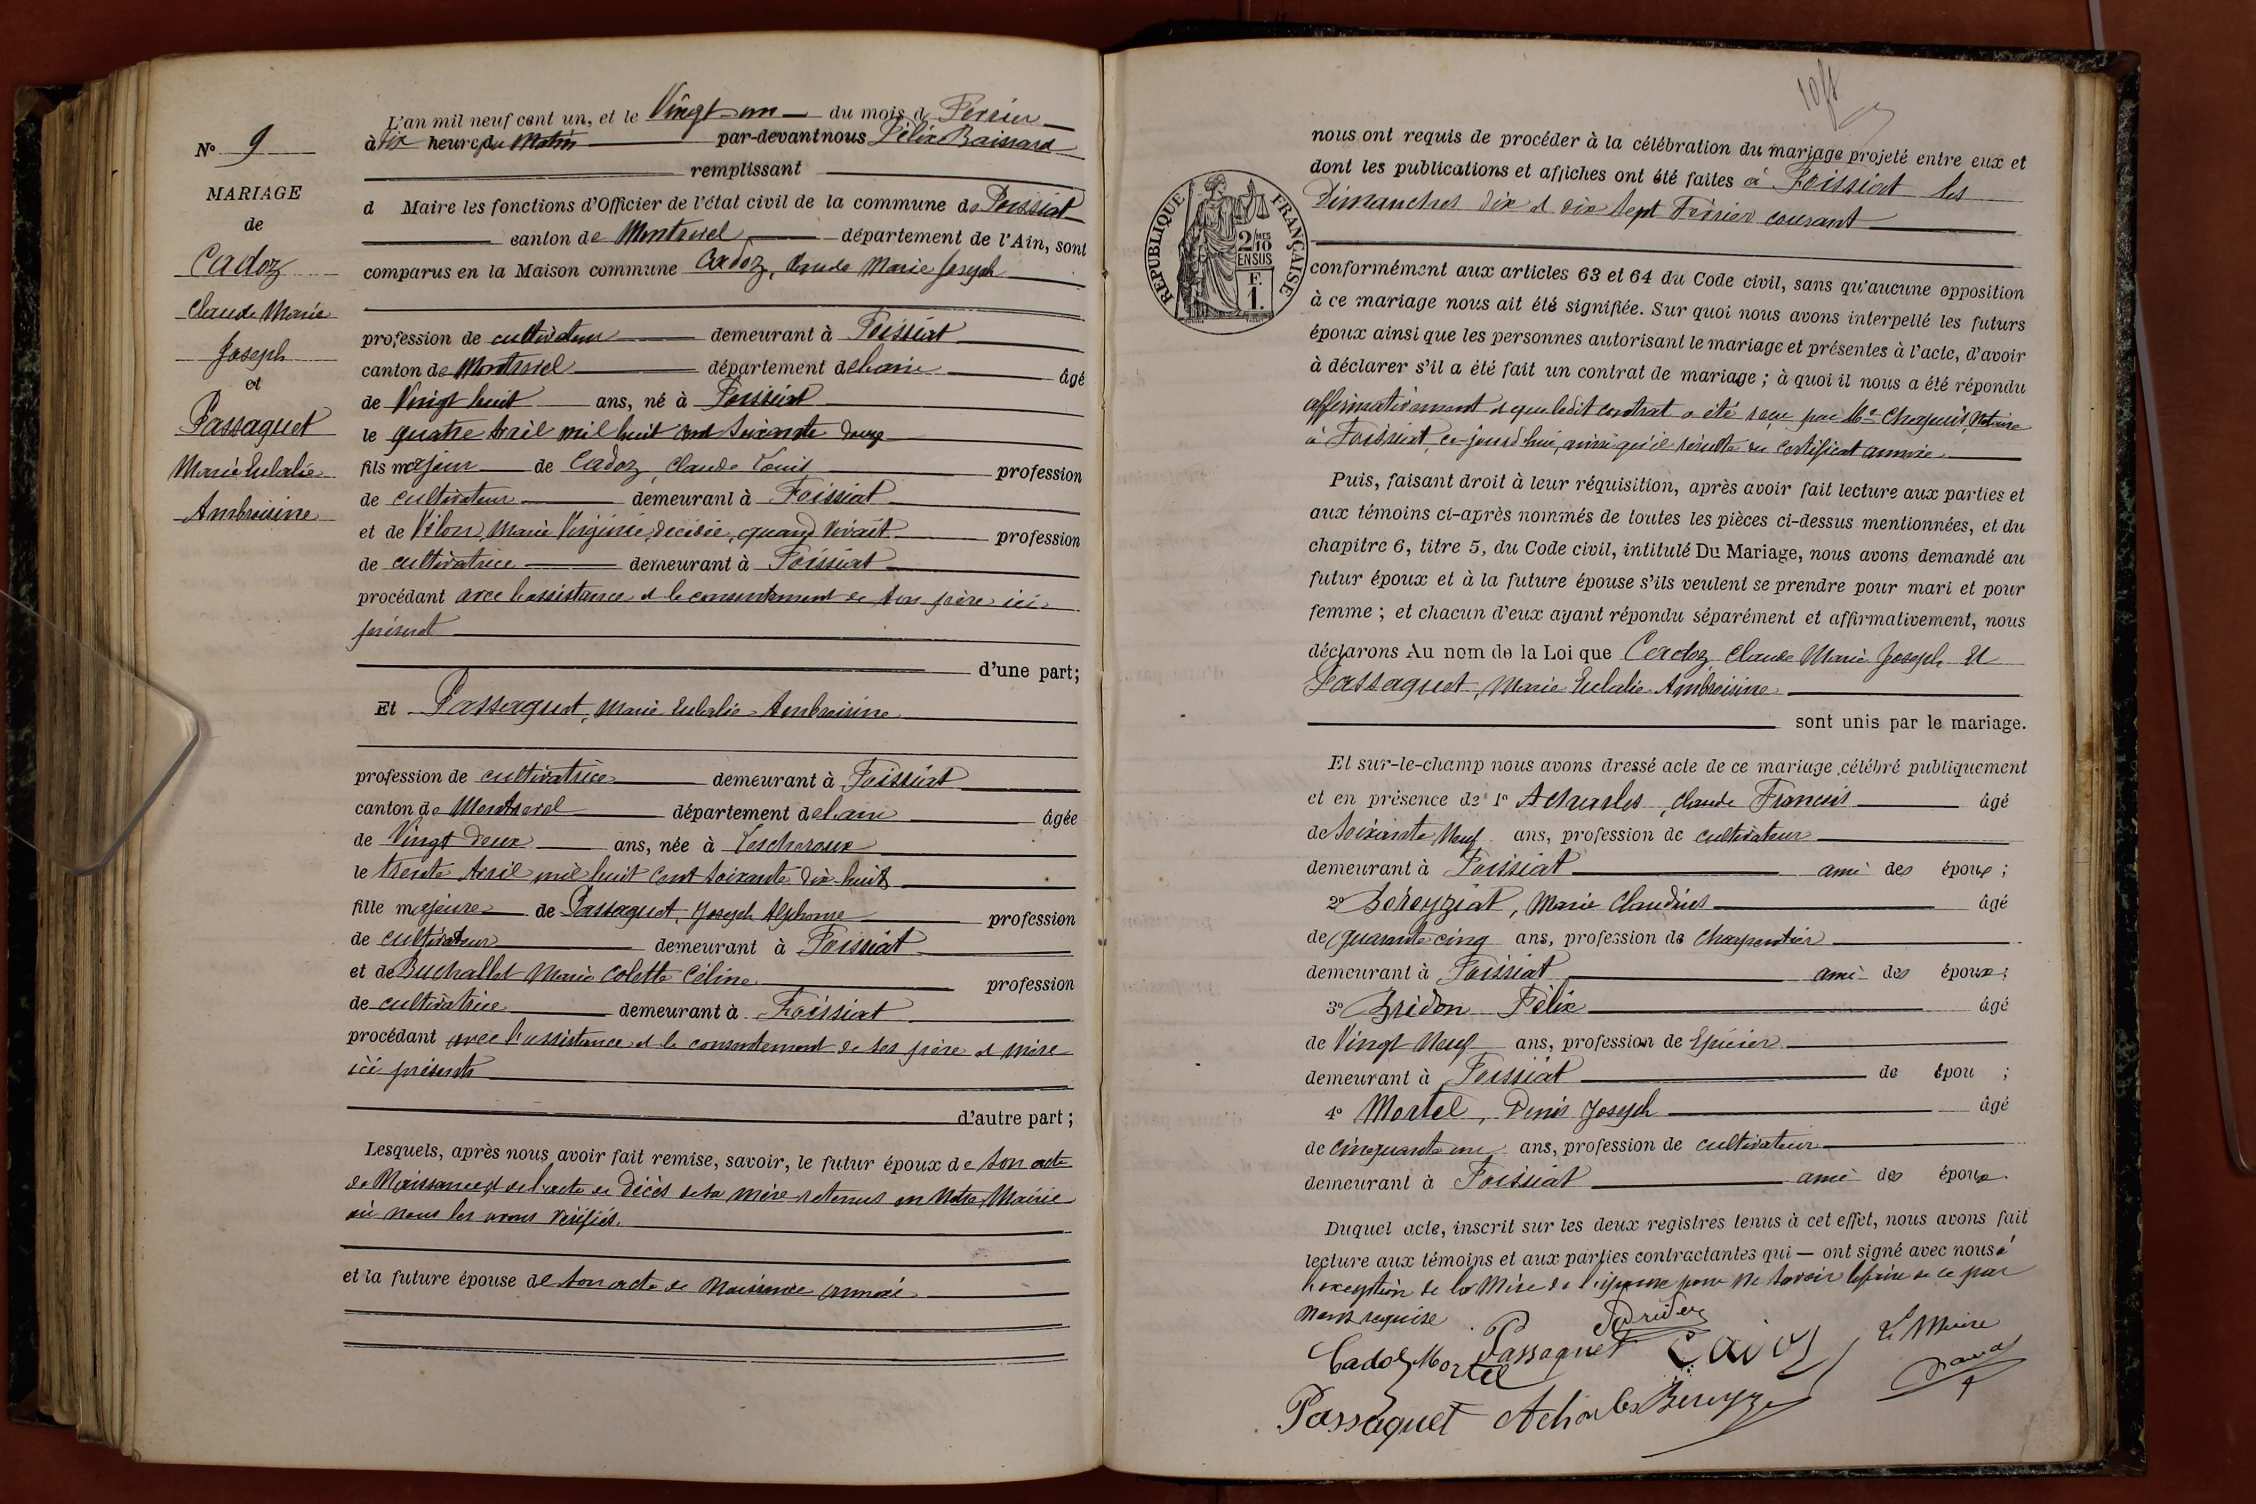 N° 9
MARIAGE
de
Cadoz
Claude Marie
Joseph
et
Passaquet
Marie Eulalie
Ambroisine
L'an mil neuf cent un, et le Vingt un du mois de Février
à dix heures du Matin par-devant nous Félix
remplissant
d Maire les fonctions d'Officier de l'état civil de la commune de Foissiat
canton de Montrevel département de l'Ain, sont
comparus en la Maison commune Cadoz, Claude Marie Joseph
profession de cultivateur demeurant à Foissiat
canton de Montrevel département de l'ain âgé
de Vingt huit ans, né à Foissiat
le quatre Avril mil huit cent soixante douze
fils majeur de Cadoz, Claude Louis profession
de cultivateur demeurant à Foissiat
et de Vélon, Marie Virginie, décédée, quand vivait profession
de cultivatrice demeurant à Foissiat
procédant avec l'assistance et le consentement de son père ici
présent
d'une part;
Et Passaquet, Marie Eulalie Ambroisine
profession de cultivatrice demeurant à Foissiat
canton de Montrevel département de l'ain âgée
de Vingt deux ans, née à Lescheroux
le trente Avril mil huit cent soixante dix huit
fille majeure de Passaquet, Joseph Alphonse profession
de cultivateur demeurant à Foissiat
et de Buchallet Marie Colette Céline profession
de cultivatrice demeurant à Foissiat
procédant avec l'assistance et le consentement de ses père et mère
ici présents
d'autre part;
Lesquels, après nous avoir fait remise, savoir, le futur époux de son acte
de Naissance et de l'acte de Décès de sa mère retenus en Notre Mairie
où nous les avons vérifiés.
et la future épouse de son acte de Naissance annexé
nous ont requis de procéder à la célébration du mariage projeté entre eux et
dont les publications et affiches ont été faites à Foissiat les
Dimanches dix et dix sept Février courant
RÉPUBLIQUE FRANÇAISE
2/10 MES
EN SUS
F.
1.
conformément aux articles 63 et 64 du Code civil, sans qu'aucune opposition
à ce mariage nous ait été signifiée. Sur quoi nous avons interpellé les futurs
époux ainsi que les personnes autorisant le mariage et présentes à l'acte, d'avoir
à déclarer s'il a été fait un contrat de mariage; à quoi il nous a été répondu
affirmativement et que ledit contrat a été reçu par Me Chapuis, Notaire
à Foissiat, ce jourd'hui, ainsi qu'il résulte du certificat annexé.
Puis, faisant droit à leur réquisition, après avoir fait lecture aux parties et
aux témoins ci-après nommés de toutes les pièces ci-dessus mentionnées, et du
chapitre 6, titre 5, du Code civil, intitulé Du Mariage, nous avons demandé au
futur époux et à la future épouse s'ils veulent se prendre pour mari et pour
femme; et chacun d'eux ayant répondu séparément et affirmativement, nous
déclarons Au nom de la Loi que Cadoz, Claude Marie Joseph Et
Passaquet, Marie Eulalie Ambroisine
sont unis par le mariage.
Et sur-le-champ nous avons dressé acte de ce mariage célébré publiquement
et en présence de 1° Acharles, Claude Francis âgé
de soixante Neuf ans, profession de cultivateur
demeurant à Foissiat ami des époux;
2° Béreyziat, Marie Claudius âgé
de quarante cinq ans, profession de Charpentier
demeurant à Foissiat ami des époux;
3° Bridon Félix âgé
de Vingt Neuf ans, profession de Epicier
demeurant à Foissiat de épou ;
4° Mortel, Denis Joseph âgé
de cinquante un ans, profession de cultivateur
demeurant à Foissiat ami des époux.
Duquel acte, inscrit sur les deux registres tenus à cet effet, nous avons fait
lecture aux témoins et aux parties contractantes qui — ont signé avec nous à
l'exception de la Mère de l'épouse pour ne savoir le faire de ce par
nous requise
Bridon
Le Maire
Cadoz Mortel Passaquet
Passaquet Acharles